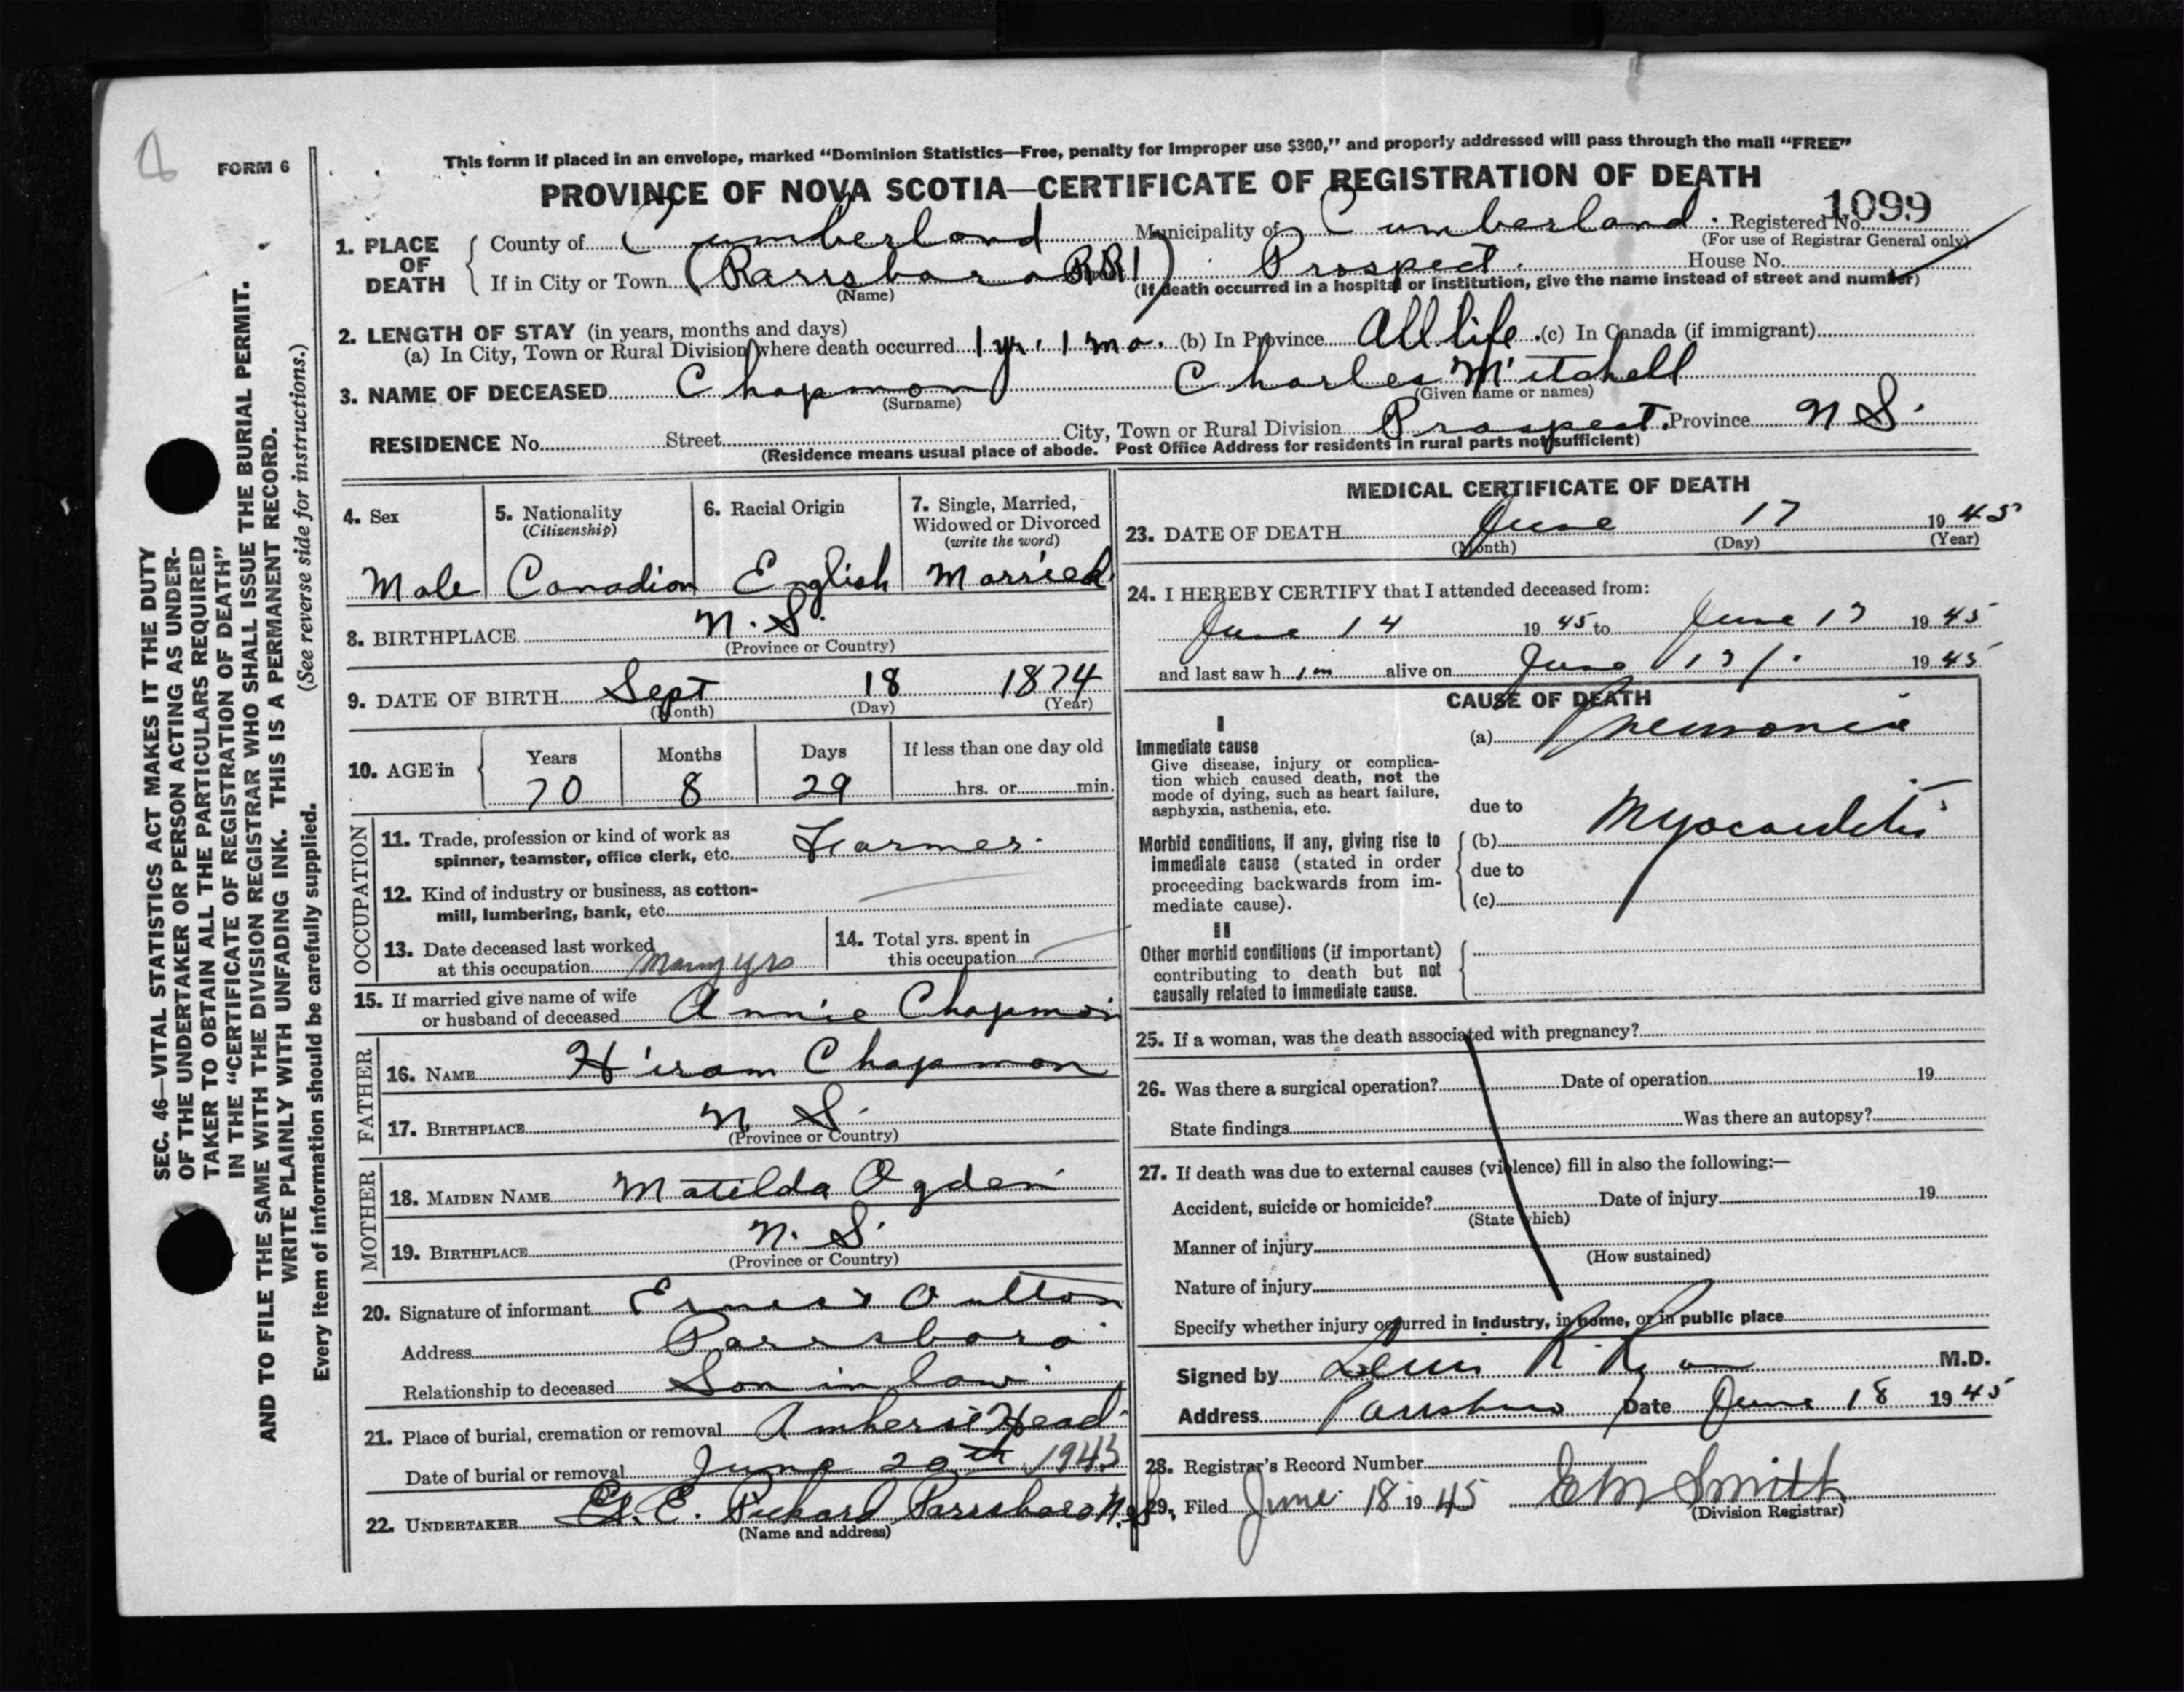 FORM 6
This form if placed in an envelope, marked “Dominion Statistics—Free, penalty for improper use $300,” and properly addressed will pass through the mail “FREE”
PROVINCE OF NOVA SCOTIA—CERTIFICATE OF REGISTRATION OF DEATH
1. PLACE OF DEATH
County of Cumberland Municipality of Cumberland Registered No. 1099
(For use of Registrar General only)
If in City or Town (Parrsboro RR1) Prospect. House No.
(Name) (If death occurred in a hospital or institution, give the name instead of street and number)
2. LENGTH OF STAY (in years, months and days)
(a) In City, Town or Rural Division where death occurred 1 yr. 1 mo. (b) In Province All life. (c) In Canada (if immigrant)
3. NAME OF DECEASED Chapman Charles Mitchell
(Surname) (Given name or names)
RESIDENCE No. Street City, Town or Rural Division Prospect. Province N S.
(Residence means usual place of abode. Post Office Address for residents in rural parts not sufficient)
4. Sex
Male
5. Nationality
(Citizenship)
Canadian
6. Racial Origin
English
7. Single, Married,
Widowed or Divorced
(write the word)
Married
8. BIRTHPLACE N. S.
(Province or Country)
9. DATE OF BIRTH Sept 18 1874
(Month) (Day) (Year)
10. AGE in
Years Months Days If less than one day old
70 8 29 hrs. or min.
OCCUPATION
11. Trade, profession or kind of work as
spinner, teamster, office clerk, etc. Farmer.
12. Kind of industry or business, as cotton-
mill, lumbering, bank, etc.
13. Date deceased last worked
at this occupation many yrs
14. Total yrs. spent in
this occupation
15. If married give name of wife
or husband of deceased Annie Chapman
FATHER
16. NAME Hiram Chapman
17. BIRTHPLACE N S.
(Province or Country)
MOTHER
18. MAIDEN NAME Matilda Ogden
19. BIRTHPLACE N. S.
(Province or Country)
20. Signature of informant Ernest Oulton
Address Parrsboro
Relationship to deceased Son in law
21. Place of burial, cremation or removal Amherst Head
Date of burial or removal June 20th 1945
22. UNDERTAKER E. Pickard Parrsboro N.S.
(Name and address)
MEDICAL CERTIFICATE OF DEATH
23. DATE OF DEATH June 17 1945
(Month) (Day) (Year)
24. I HEREBY CERTIFY that I attended deceased from:
June 14 1945 to June 17 1945
and last saw him alive on June 17 1945
CAUSE OF DEATH
I
Immediate cause
Give disease, injury or complica-
tion which caused death, not the
mode of dying, such as heart failure,
asphyxia, asthenia, etc.
(a) Pneumonia
due to
Morbid conditions, if any, giving rise to
immediate cause (stated in order
proceeding backwards from im-
mediate cause).
(b) Myocarditis
due to
(c)
II
Other morbid conditions (if important)
contributing to death but not
causally related to immediate cause.
25. If a woman, was the death associated with pregnancy?
26. Was there a surgical operation? Date of operation 19
State findings Was there an autopsy?
27. If death was due to external causes (violence) fill in also the following:—
Accident, suicide or homicide? Date of injury 19
(State which)
Manner of injury
(How sustained)
Nature of injury
Specify whether injury occurred in industry, in home, or in public place
Signed by R. Ryan M.D.
Address Parrsboro Date June 18 1945
28. Registrar's Record Number
29. Filed June 18 1945 E M Smith
(Division Registrar)
SEC. 46—VITAL STATISTICS ACT MAKES IT THE DUTY
OF THE UNDERTAKER OR PERSON ACTING AS UNDER-
TAKER TO OBTAIN ALL THE PARTICULARS REQUIRED
IN THE “CERTIFICATE OF REGISTRATION OF DEATH”
AND TO FILE THE SAME WITH THE DIVISION REGISTRAR WHO SHALL ISSUE THE BURIAL PERMIT.
WRITE PLAINLY WITH UNFADING INK. THIS IS A PERMANENT RECORD.
(See reverse side for instructions.)
Every item of information should be carefully supplied.